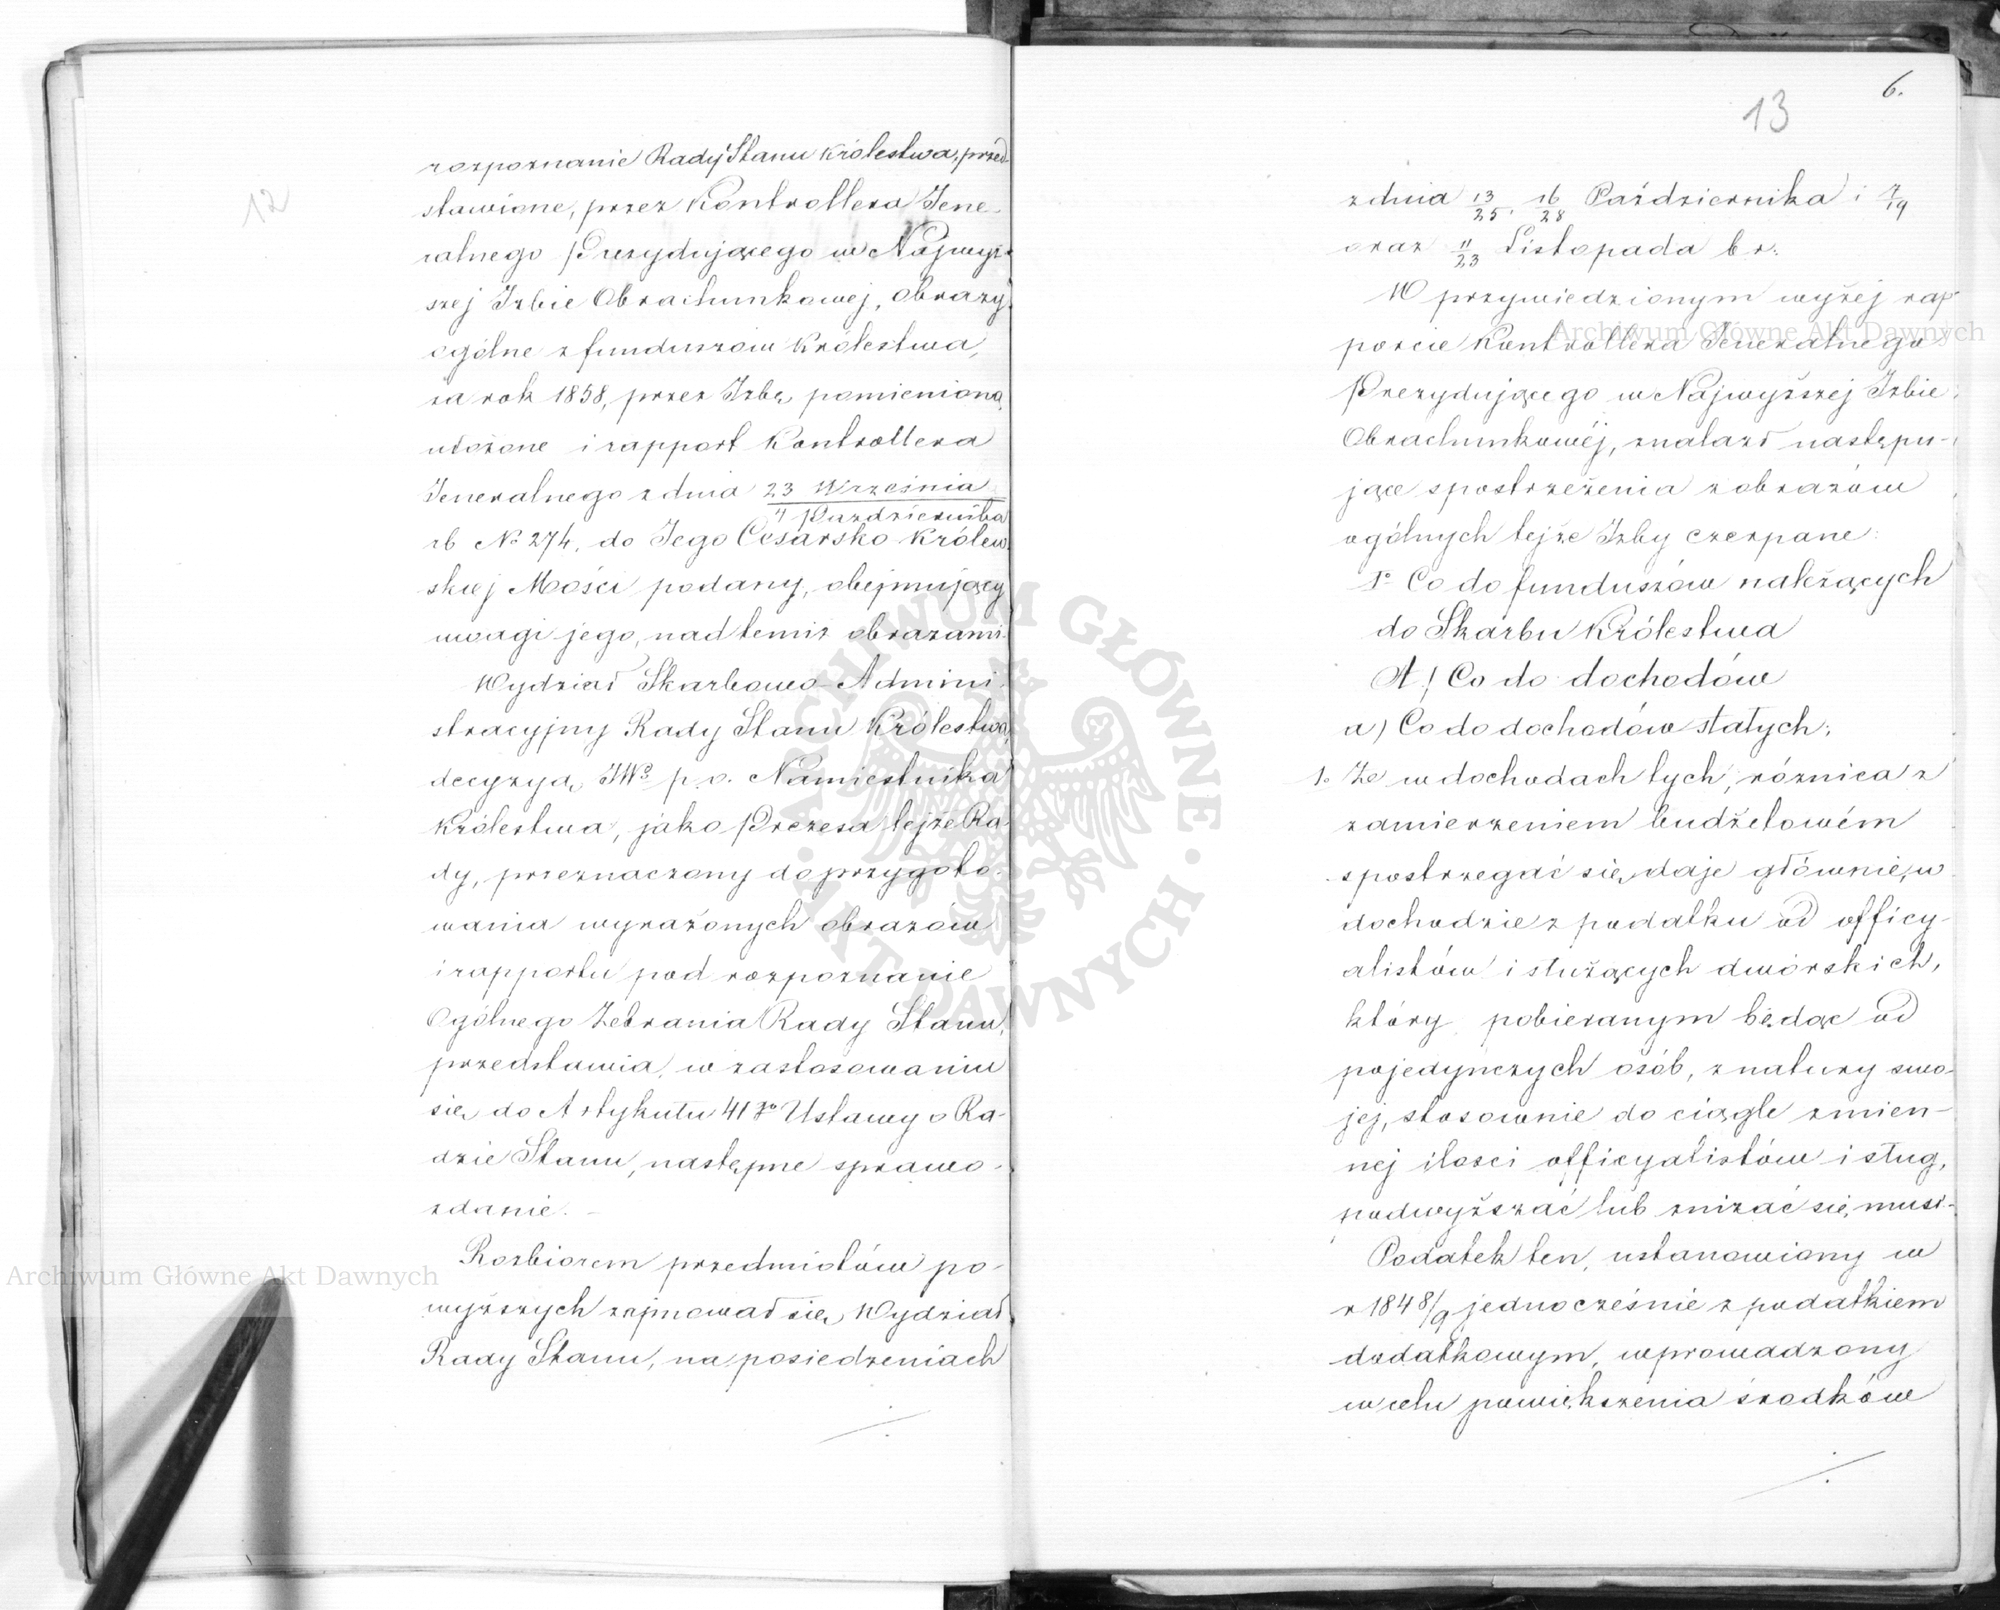 12
rozpoznanie Rady Stanu Królestwa, przed-
stawione, przez Kontrollera Jene-
ralnego Prezydującego w Najwyż-
szej Izbie Obrachunkowej, obrazy
ogólne z funduszów Królestwa,
za rok 1858, przez Izbę pomienioną
ułożone i rapport Kontrollera
Jeneralnego z dnia 23 Września
4 Października
rb No 274, do Jego Cesarsko Królew-
skiej Mości podany, obejmujący
uwagi jego, nad temiż obrazami.
Wydział Skarbowo-Admini-
stracyjny Rady Stanu Królestwa,
decyzyą JWo p.o. Namiestnika
Królestwa, jako Prezesa tejże Ra-
dy, przeznaczony do przygoto-
wania wyrażonych obrazów
i rapportu pod rozpoznanie
Ogólnego Zebrania Rady Stanu,
przedstawia, w zastosowaniu
się do Artykułu 41go Ustawy o Ra-
dzie Stanu, następne sprawo-
zdanie. –
Rozbiorem przedmiotów po-
wyższych zajmował się Wydział
Rady Stanu, na posiedzeniach
6.
13
z dnia 13/25, 16/28 Października i 7/19
oraz 11/23 Listopada b r:
W przywiedzionym wyżej rap-
porcie Kontrollera Jeneralnego
Prezydującego w Najwyższej Izbie
Obrachunkowéj, znalazł następu-
jące spostrzeżenia z obrazów
ogólnych tejże Izby czerpane:
1o Co do funduszów należących
do Skarbu Królestwa
A) Co do dochodów
a) Co do dochodów stałych;
1. Że w dochodach tych, różnica z
zamierzeniem budżetowém
spostrzegać się daje głównie, w
dochodzie z podatku od officy-
alistów i służących dworskich,
który pobieranym będąc od
pojedynczych osób, z natury swo-
jej, stosownie do ciągle zmien-
nej ilości officyalistów i sług,
podwyższać lub zniżać się musi.
Podatek ten, ustanowiony w
r 1848/9 jednocześnie z podatkiem
dodatkowym, wprowadzony
w celu powiększenia środków
Archiwum Główne Akt Dawnych
Archiwum Główne Akt Dawnych
· ARCHIWUM GŁÓWNE · AKT DAWNYCH